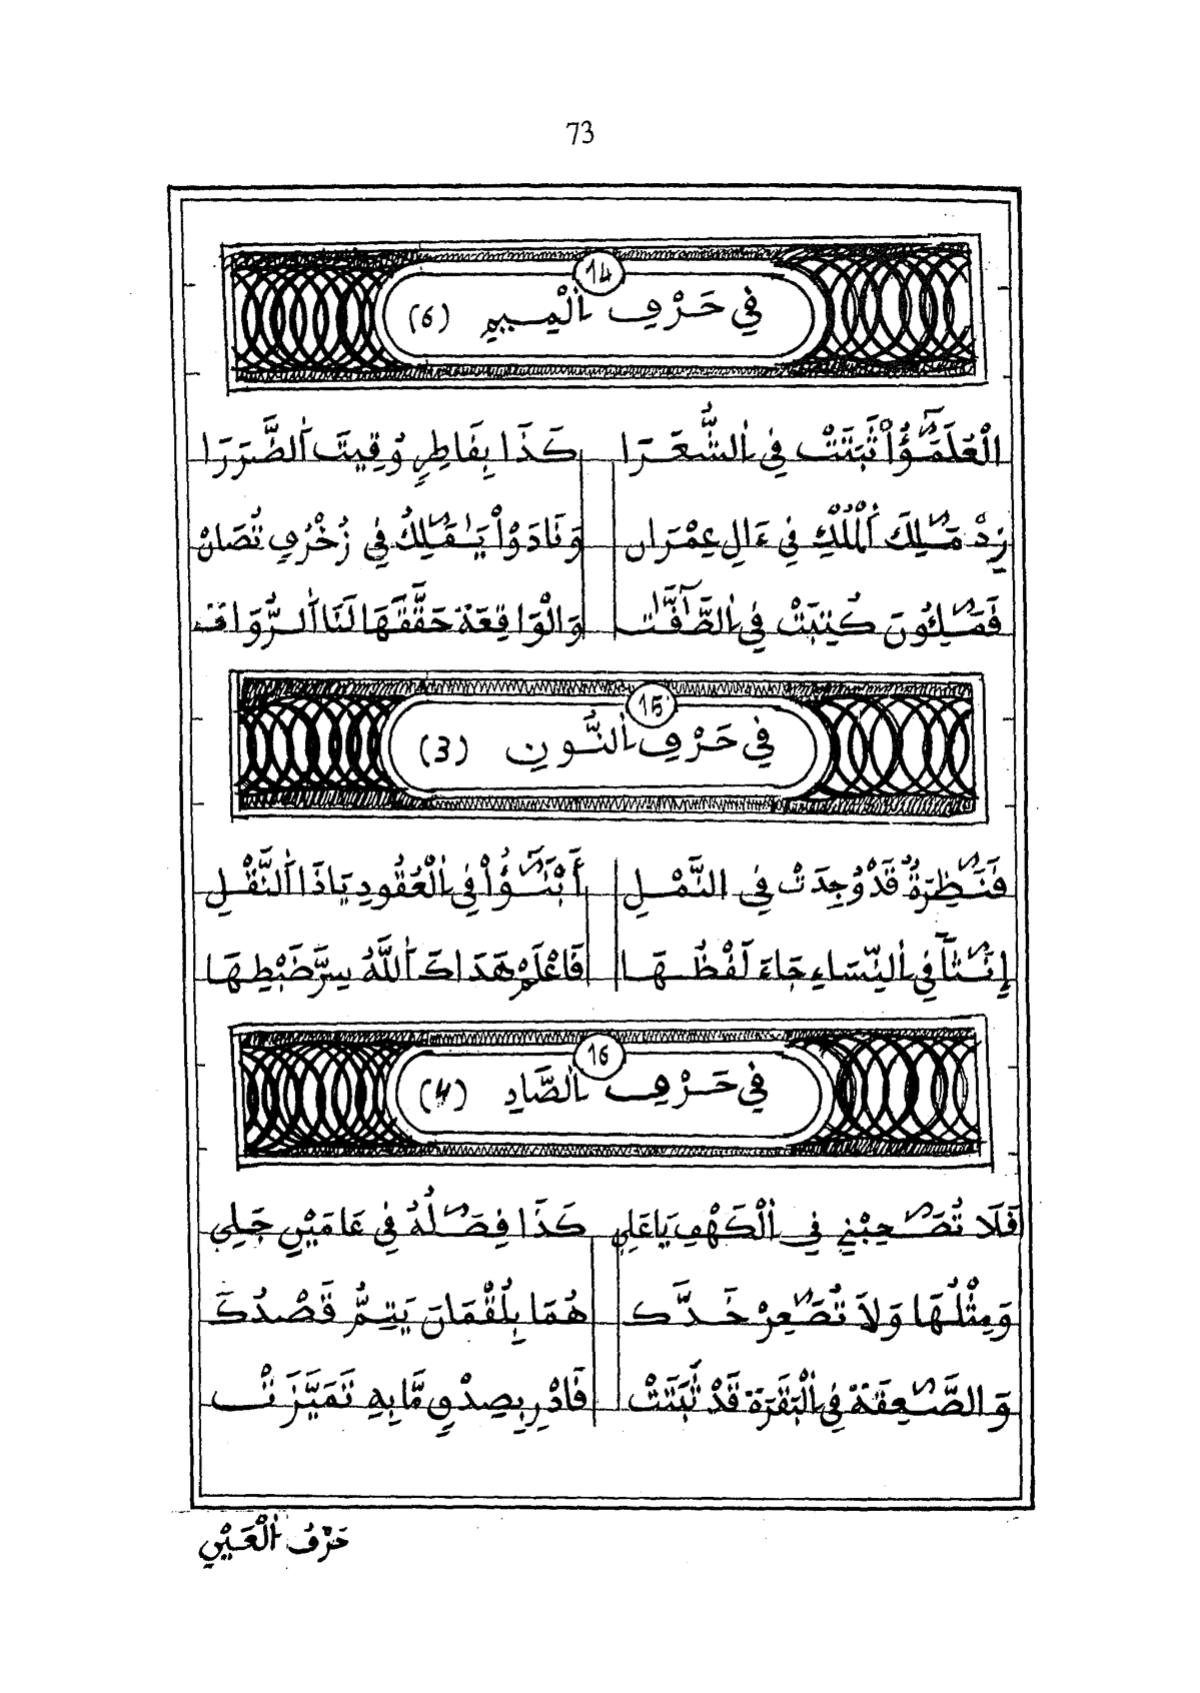 73
14
فِي حَرْفِ اْلْمِيمِ (6)
الْعُلَمَٰؤُاْ ثَبَتَتْ فِي اْلشُّعَرَا كَذَا بِفَاطِرٍ وُقِيتَ اَلضَّرَرَا
زِدْ مَٰلِكَ اَلْمُلْكِ فِي ءَالِ عِمْرَان وَنَادَوْاْ يَٰمَٰلِكُ فِي زُخْرُفِ تُصَانْ
فَمَٰلِئُونَ كُتِبَتْ فِي اْلصَّٰٓفَّٰت وَالْوَاقِعَة حَقَّقَهَا لَنَا اَلرُّوَات
15
فِي حَرْفِ اْلنُّونِ (3)
فَنَٰظِرَةٌ قَدْ وُجِدَتْ فِي النَّمْلِ أَبْنَٰٓؤُاْ فِي اْلْعُقُودِ يَاذَا اَلنَّقْلِ
إِنَٰثاً فِي اْلنِّسَاءِ جَاءَ لَفْظُهَا فَاعْلَمْ هَدَاكَ اَللَّهُ سِرَّ ضَبْطِهَا
16
فِي حَرْفِ اْلصَّادِ (4)
فَلَا تُصَٰحِبْنِي فِي اْلْكَهْفِ يَا عَلِي كَذَا فِصَٰلُهُ فِي عَامَيْنِ جَلِي
وَمِثْلُهَا وَلَا تُصَٰعِرْ خَدَّك هُمَا بِلُقْمَانَ يَتِمُّ قَصْدُكَ
وَالصَّٰعِقَة فِي اْلْبَقَرَة قَدْ ثُبِّتَتْ فَادْرِ بِصِدْقٍ مَّا بِهِ تَمَيَّزَتْ
حَرْفُ اْلْعَيْنِ